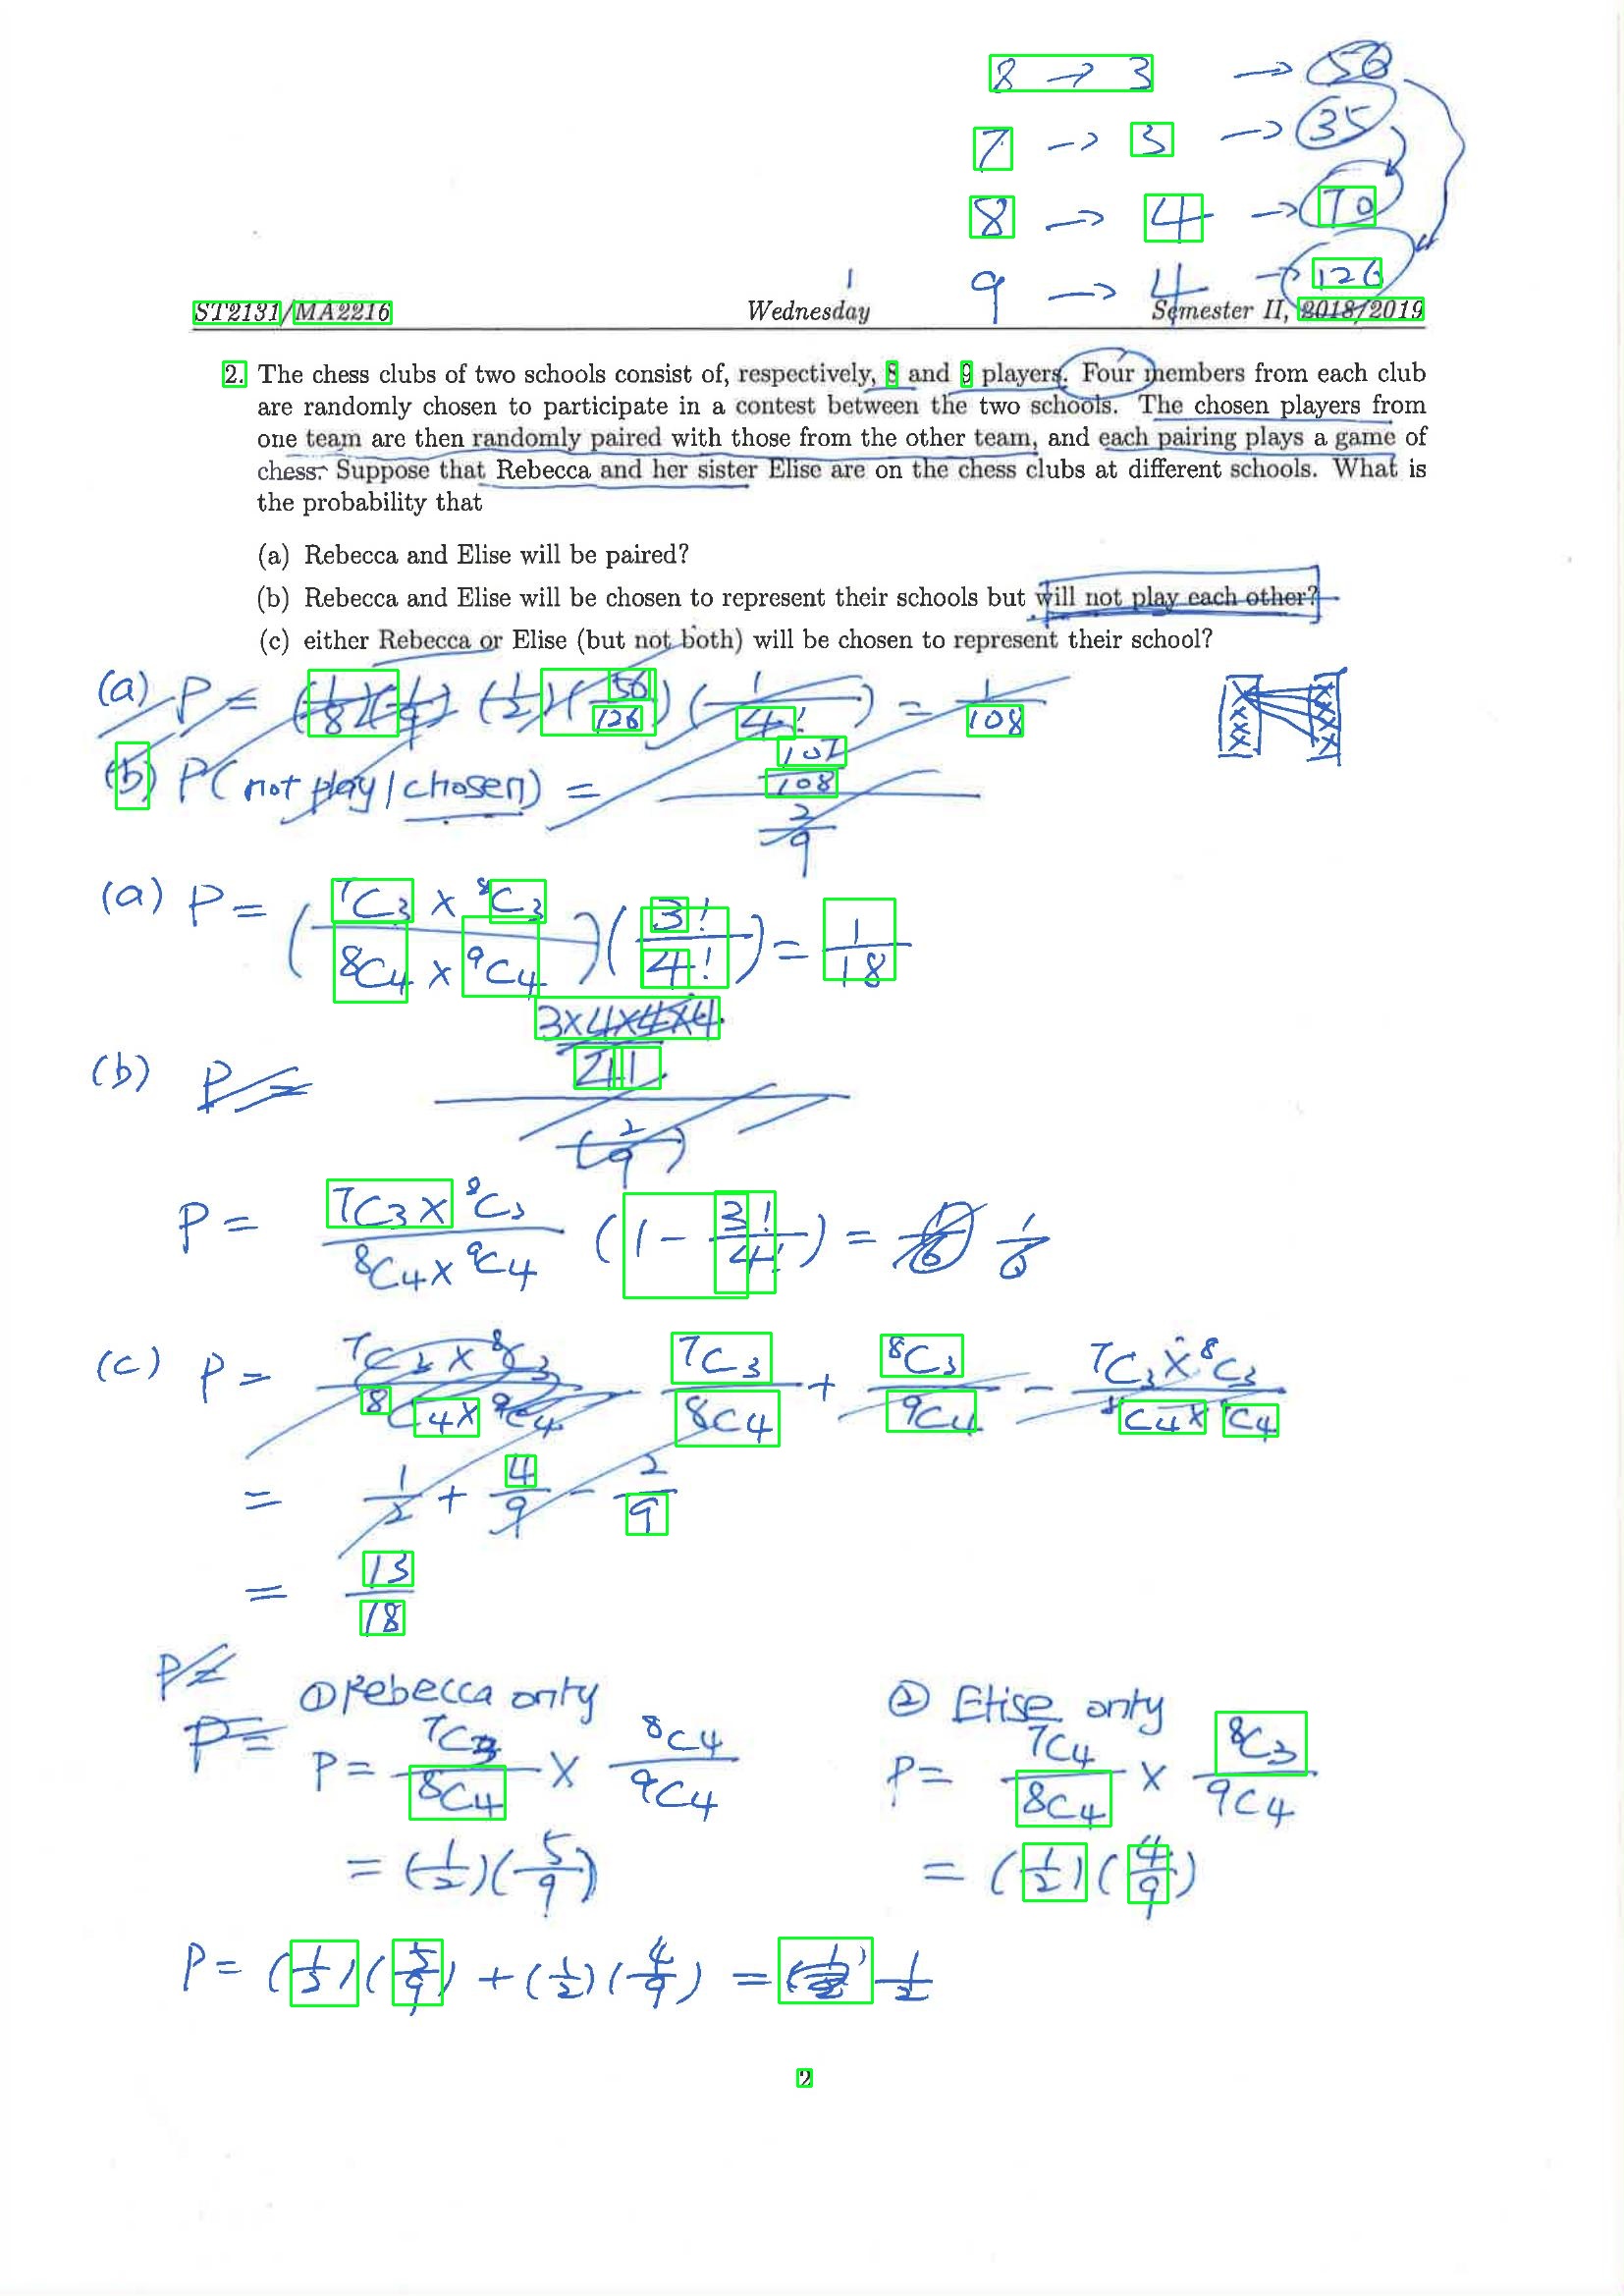 8 → 3 → 56
7 → 3 → 35
8 → 4 → 70
9 → 4 → 126
ST2131/MA2216 Wednesday Semester II, 2018/2019
2. The chess clubs of two schools consist of, respectively, 8 and 9 players. Four members from each club
are randomly chosen to participate in a contest between the two schools. The chosen players from
one team are then randomly paired with those from the other team, and each pairing plays a game of
chess. Suppose that Rebecca and her sister Elise are on the chess clubs at different schools. What is
the probability that
(a) Rebecca and Elise will be paired?
(b) Rebecca and Elise will be chosen to represent their schools but will not play each other?
(c) either Rebecca or Elise (but not both) will be chosen to represent their school?
(a) P = (1/8)(1/9) (1/2)(56/126)(1/4!) = 1/108
(b) P(not play | chosen) = (107/108)/(2/9)
(a) P = (7C3 × 8C3 / 8C4 × 9C4)(3!/4!) = 1/18
(b) P = (3×4×4×4 / 4!)/(2/9)
P = 7C3 × 8C3 / 8C4 × 9C4 (1 − 3!/4!) = 1/6 1/6
(c) P = 7C3 × 8C3 / 8C4 × 9C4 7C3/8C4 + 8C3/9C4 − 7C3 × 8C3 / 8C4 × 9C4
= 1/2 + 4/9 − 2/9
= 13/18
P =
① Rebecca only ② Elise only
P =
P = 7C3/8C4 × 8C4/9C4 P = 7C4/8C4 × 8C3/9C4
= (1/2)(5/9) = (1/2)(4/9)
P = (1/2)(5/9) + (1/2)(4/9) = 1/2
2